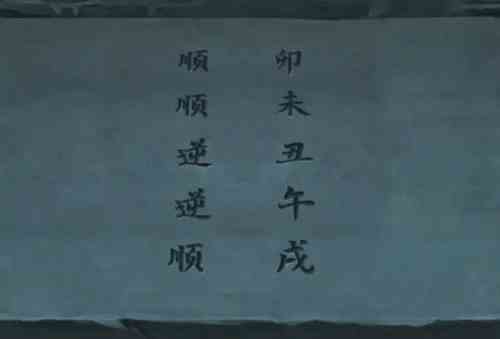 卯未丑午戌
顺顺逆逆顺